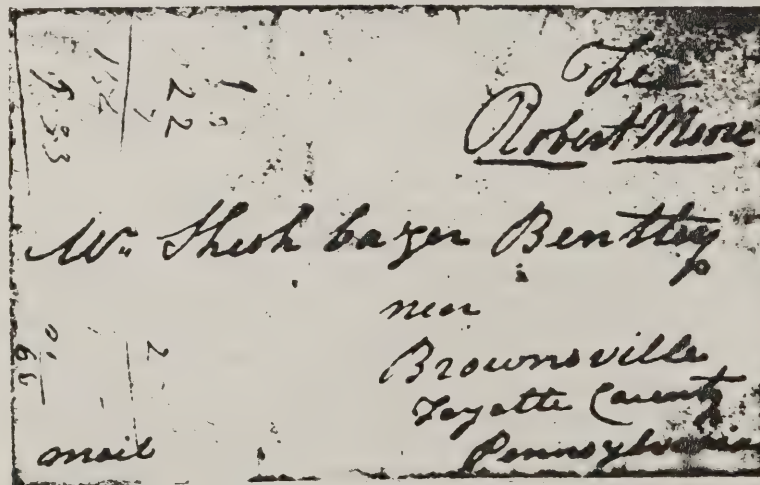 The
Robert Moore
Mr. Shesh bazer Bentley
near
Brownsville
Fayette County
mail
Pennsylvania